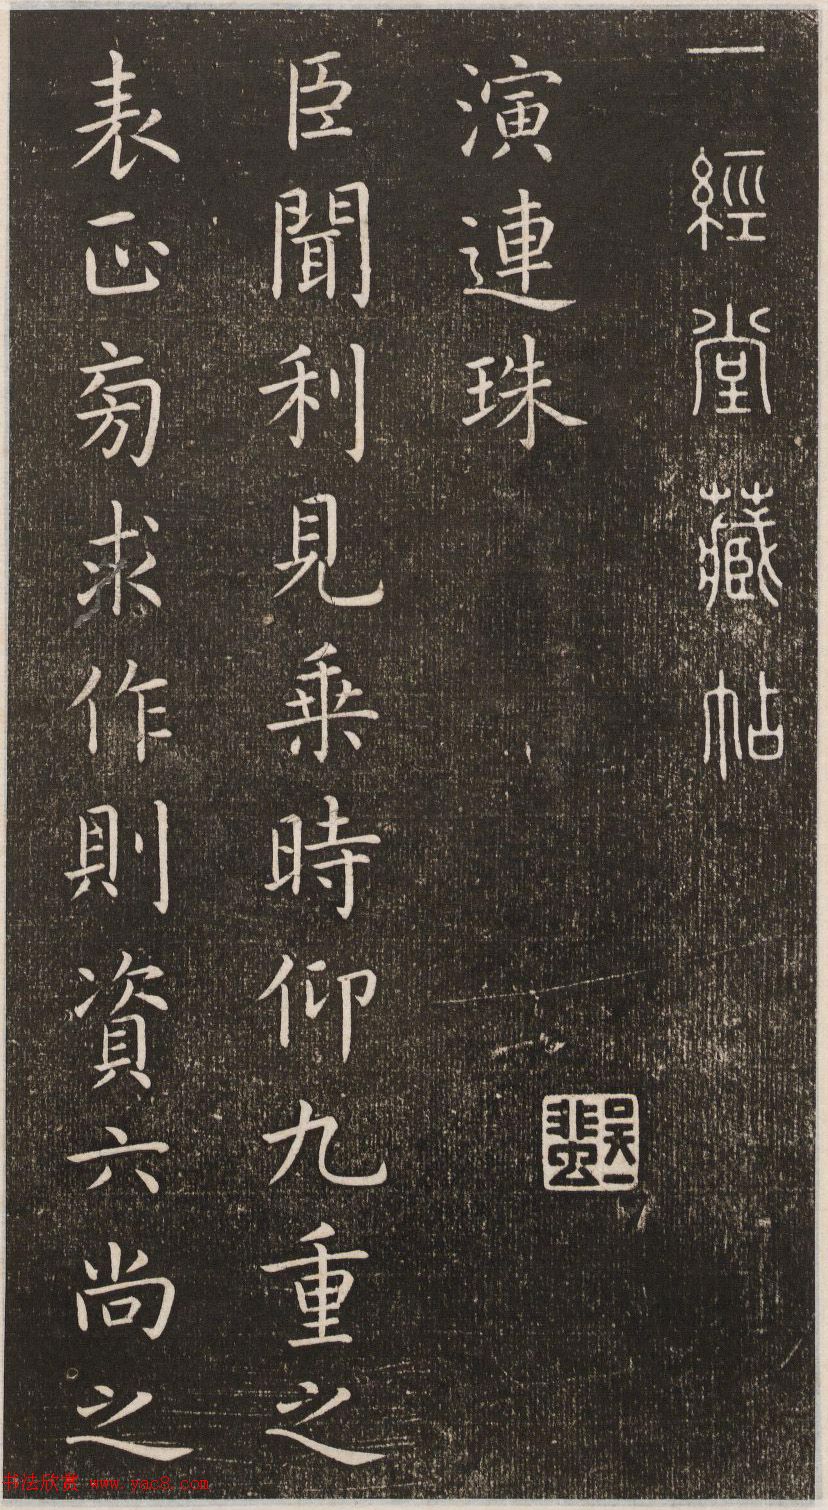 一經堂藏帖
演連珠
臣聞利見乗時仰九重之
表正㫄求作則資六尚之
书法欣赏 www.yac8.com